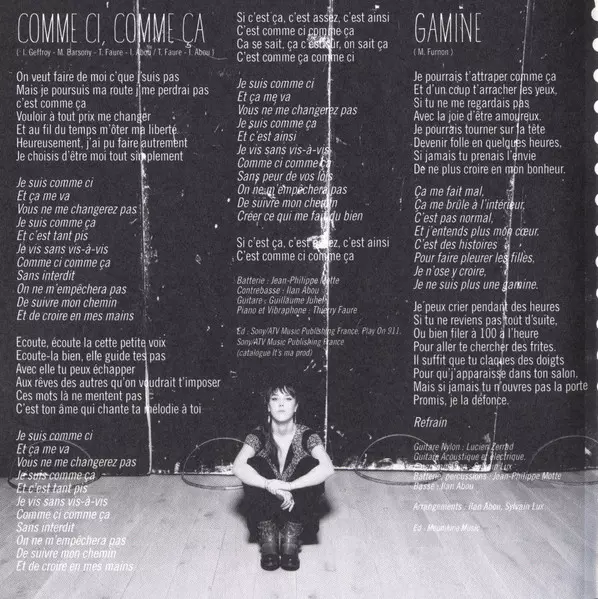 COMME CI, COMME ÇA
( I. Geffroy - M. Barsony - T. Faure - I. Abou / T. Faure - I. Abou )
On veut faire de moi c'que j'suis pas
Mais je poursuis ma route j'me perdrai pas
c'est comme ça
Vouloir à tout prix me changer
Et au fil du temps m'ôter ma liberté
Heureusement, j'ai pu faire autrement
Je choisis d'être moi tout simplement
Je suis comme ci
Et ça me va
Vous ne me changerez pas
Je suis comme ça
Et c'est tant pis
Je vis sans vis-à-vis
Comme ci comme ça
Sans interdit
On ne m'empêchera pas
De suivre mon chemin
Et de croire en mes mains
Ecoute, écoute cette petite voix
Ecoute-la bien, elle guide tes pas
Avec elle tu peux échapper
Aux rêves des autres qu'on voudrait t'imposer
Ces mots là ne mentent pas
C'est ton âme qui chante ta mélodie à toi
Je suis comme ci
Et ça me va
Vous ne me changerez pas
Je suis comme ça
Et c'est tant pis
Je vis sans vis-à-vis
Comme ci comme ça
Sans interdit
On ne m'empêchera pas
De suivre mon chemin
Et de croire en mes mains
Si c'est ça, c'est assez, c'est ainsi
C'est comme ci comme ça
Ca se sait, ça c'est sûr, on sait ça
C'est comme ça comme ci
Je suis comme ci
Et ça me va
Vous ne me changerez pas
Je suis comme ça
Et c'est ainsi
Je vis sans vis-à-vis
Comme ci comme ça
Sans peur de vos lois
On ne m'empêchera pas
De suivre mon chemin
Créer ce qui me fait du bien
Si c'est ça, c'est assez, c'est ainsi
C'est comme ci comme ça
Batterie : Jean-Philippe Motte
Contrebasse : Ilan Abou
Guitare : Guillaume Juhel
Piano et Vibraphone : Thierry Faure
Ed : Sony/ATV Music Publishing France, Play On 911.
Sony/ATV Music Publishing France
(catalogue It's ma prod)
GAMINE
( M. Furnon )
Je pourrais t'attraper comme ça
Et d'un coup t'arracher les yeux,
Si tu ne me regardais pas
Avec la joie d'être amoureux.
Je pourrais tourner sur la tête
Devenir folle en quelques heures,
Si jamais tu prenais l'envie
De ne plus croire en mon bonheur.
Ça me fait mal,
Ça me brûle à l'intérieur,
C'est pas normal,
Et j'entends plus mon cœur.
C'est des histoires
Pour faire pleurer les filles,
Je n'ose y croire,
Je ne suis plus une gamine.
Je peux crier pendant des heures
Si tu ne reviens pas tout d'suite,
Ou bien filer à 100 à l'heure
Pour aller te chercher des frites.
Il suffit que tu claques des doigts
Pour qu'j'apparaisse dans ton salon,
Mais si jamais tu n'ouvres pas la porte
Promis, je la défonce.
Refrain
Guitare Nylon : Lucien Zerrad
Guitare Acoustique et électrique,
Lux
Batterie, percussions : Jean-Philippe Motte
Basse : Ilan Abou
Arrangements : Ilan Abou, Sylvain Lux
Ed : Music